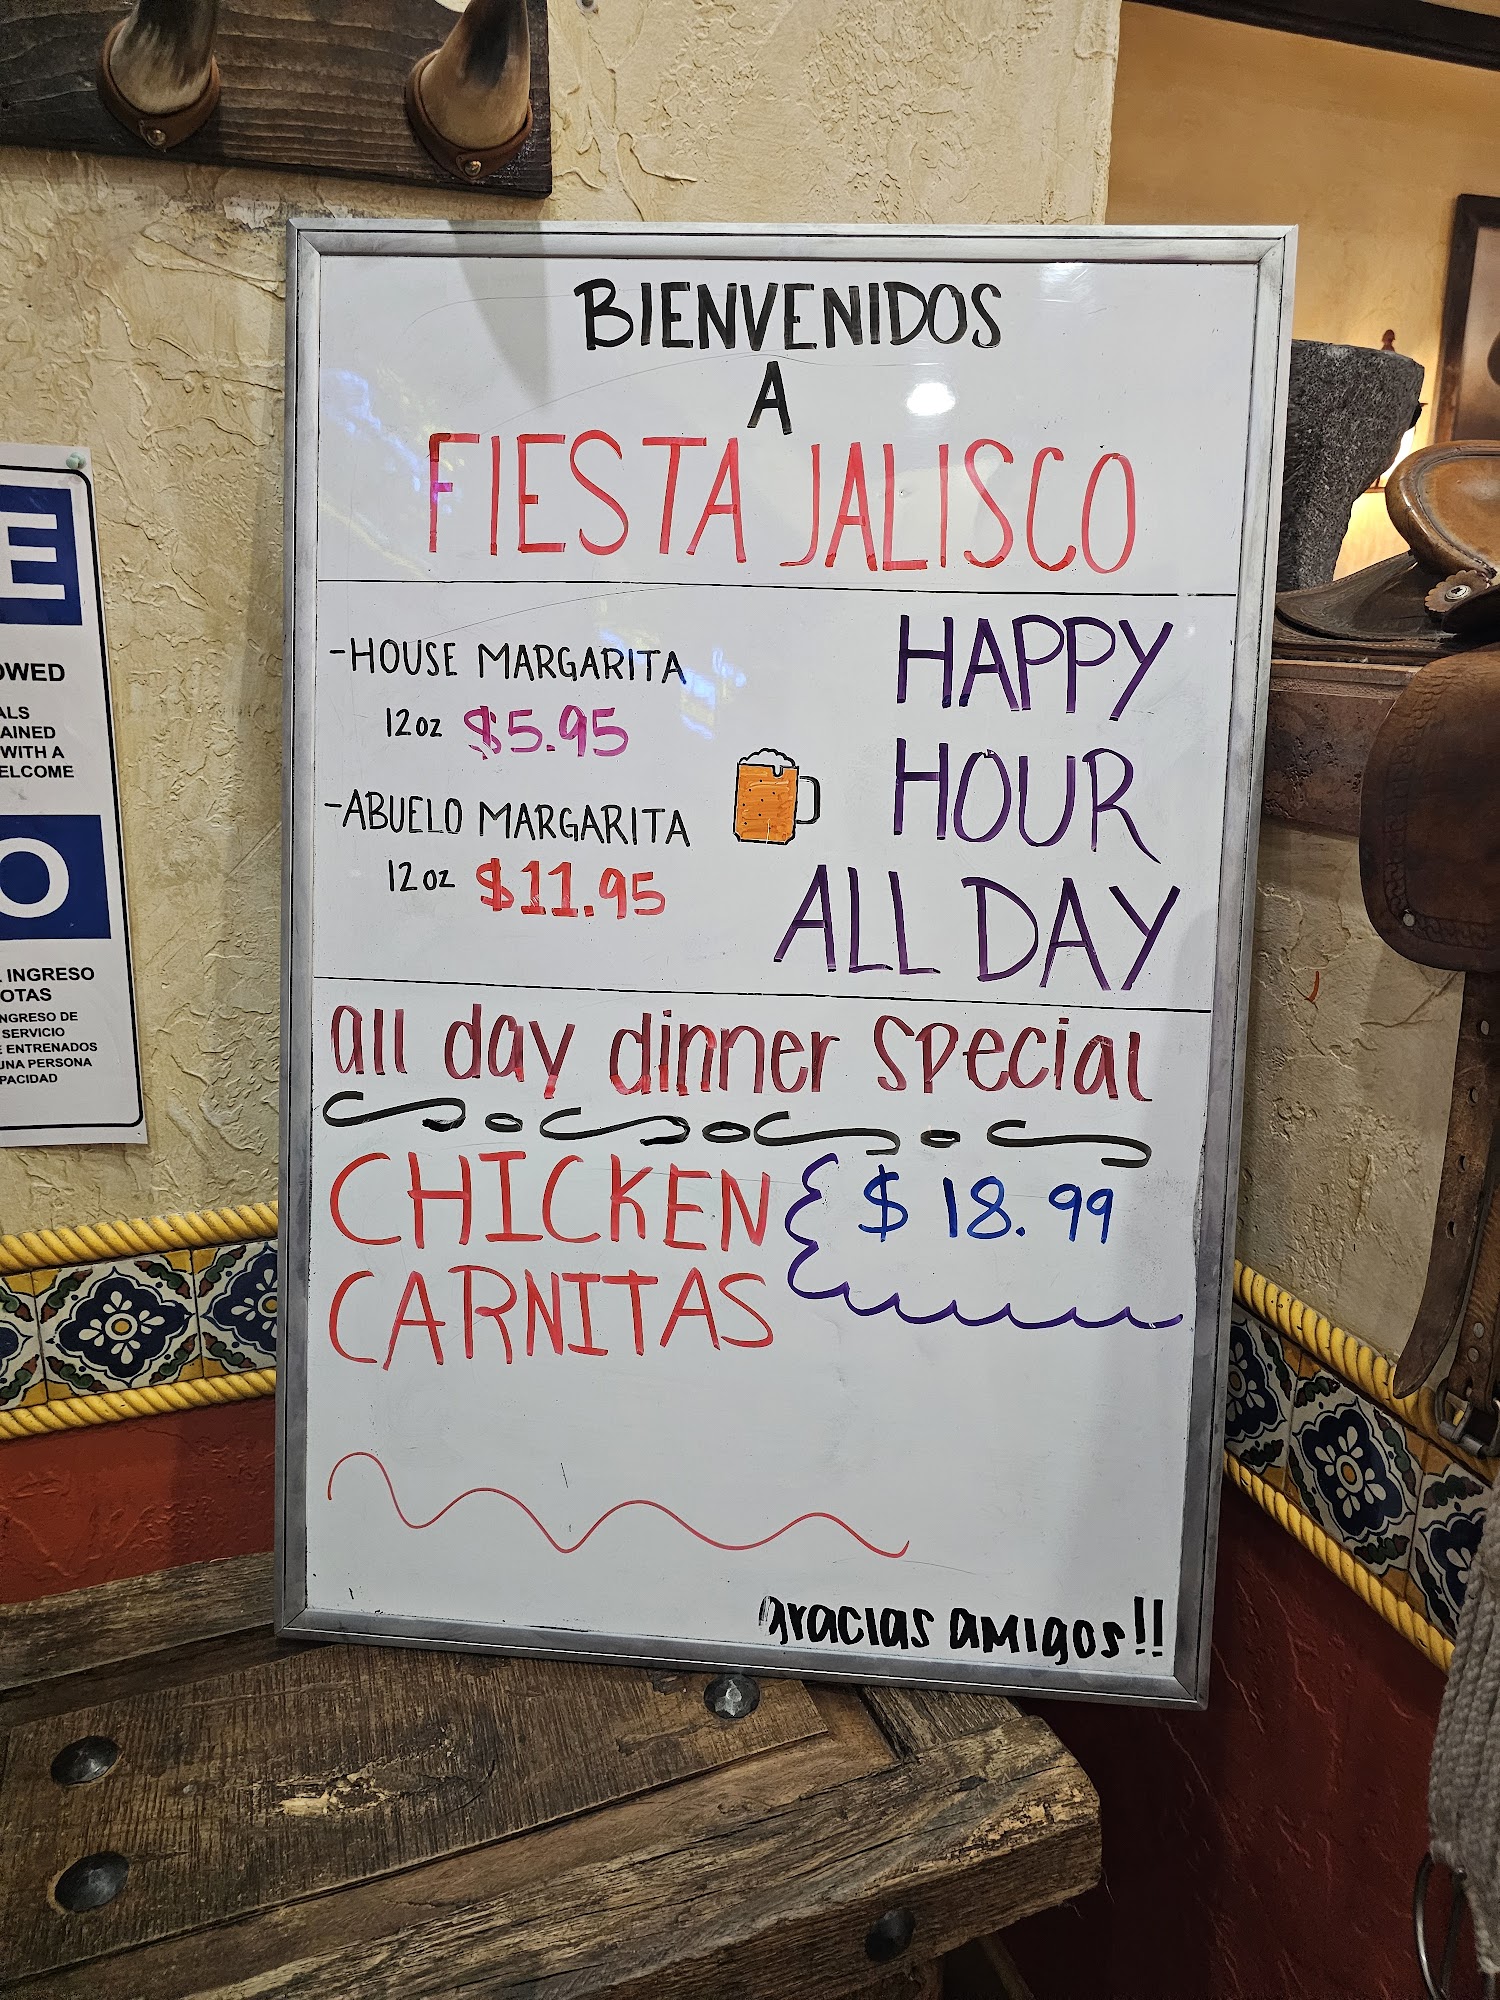 BIENVENIDOS
A
FIESTA JALISCO
-HOUSE MARGARITA
12oz $5.95
-ABUELO MARGARITA
12oz $11.95
HAPPY
HOUR
ALL DAY
all day dinner special
CHICKEN
CARNITAS
$ 18.99
Gracias amigos!!
E
OWED
ALS
AINED
WITH A
ELCOME
O
INGRESO
OTAS
NGRESO DE
SERVICIO
E ENTRENADOS
UNA PERSONA
PACIDAD